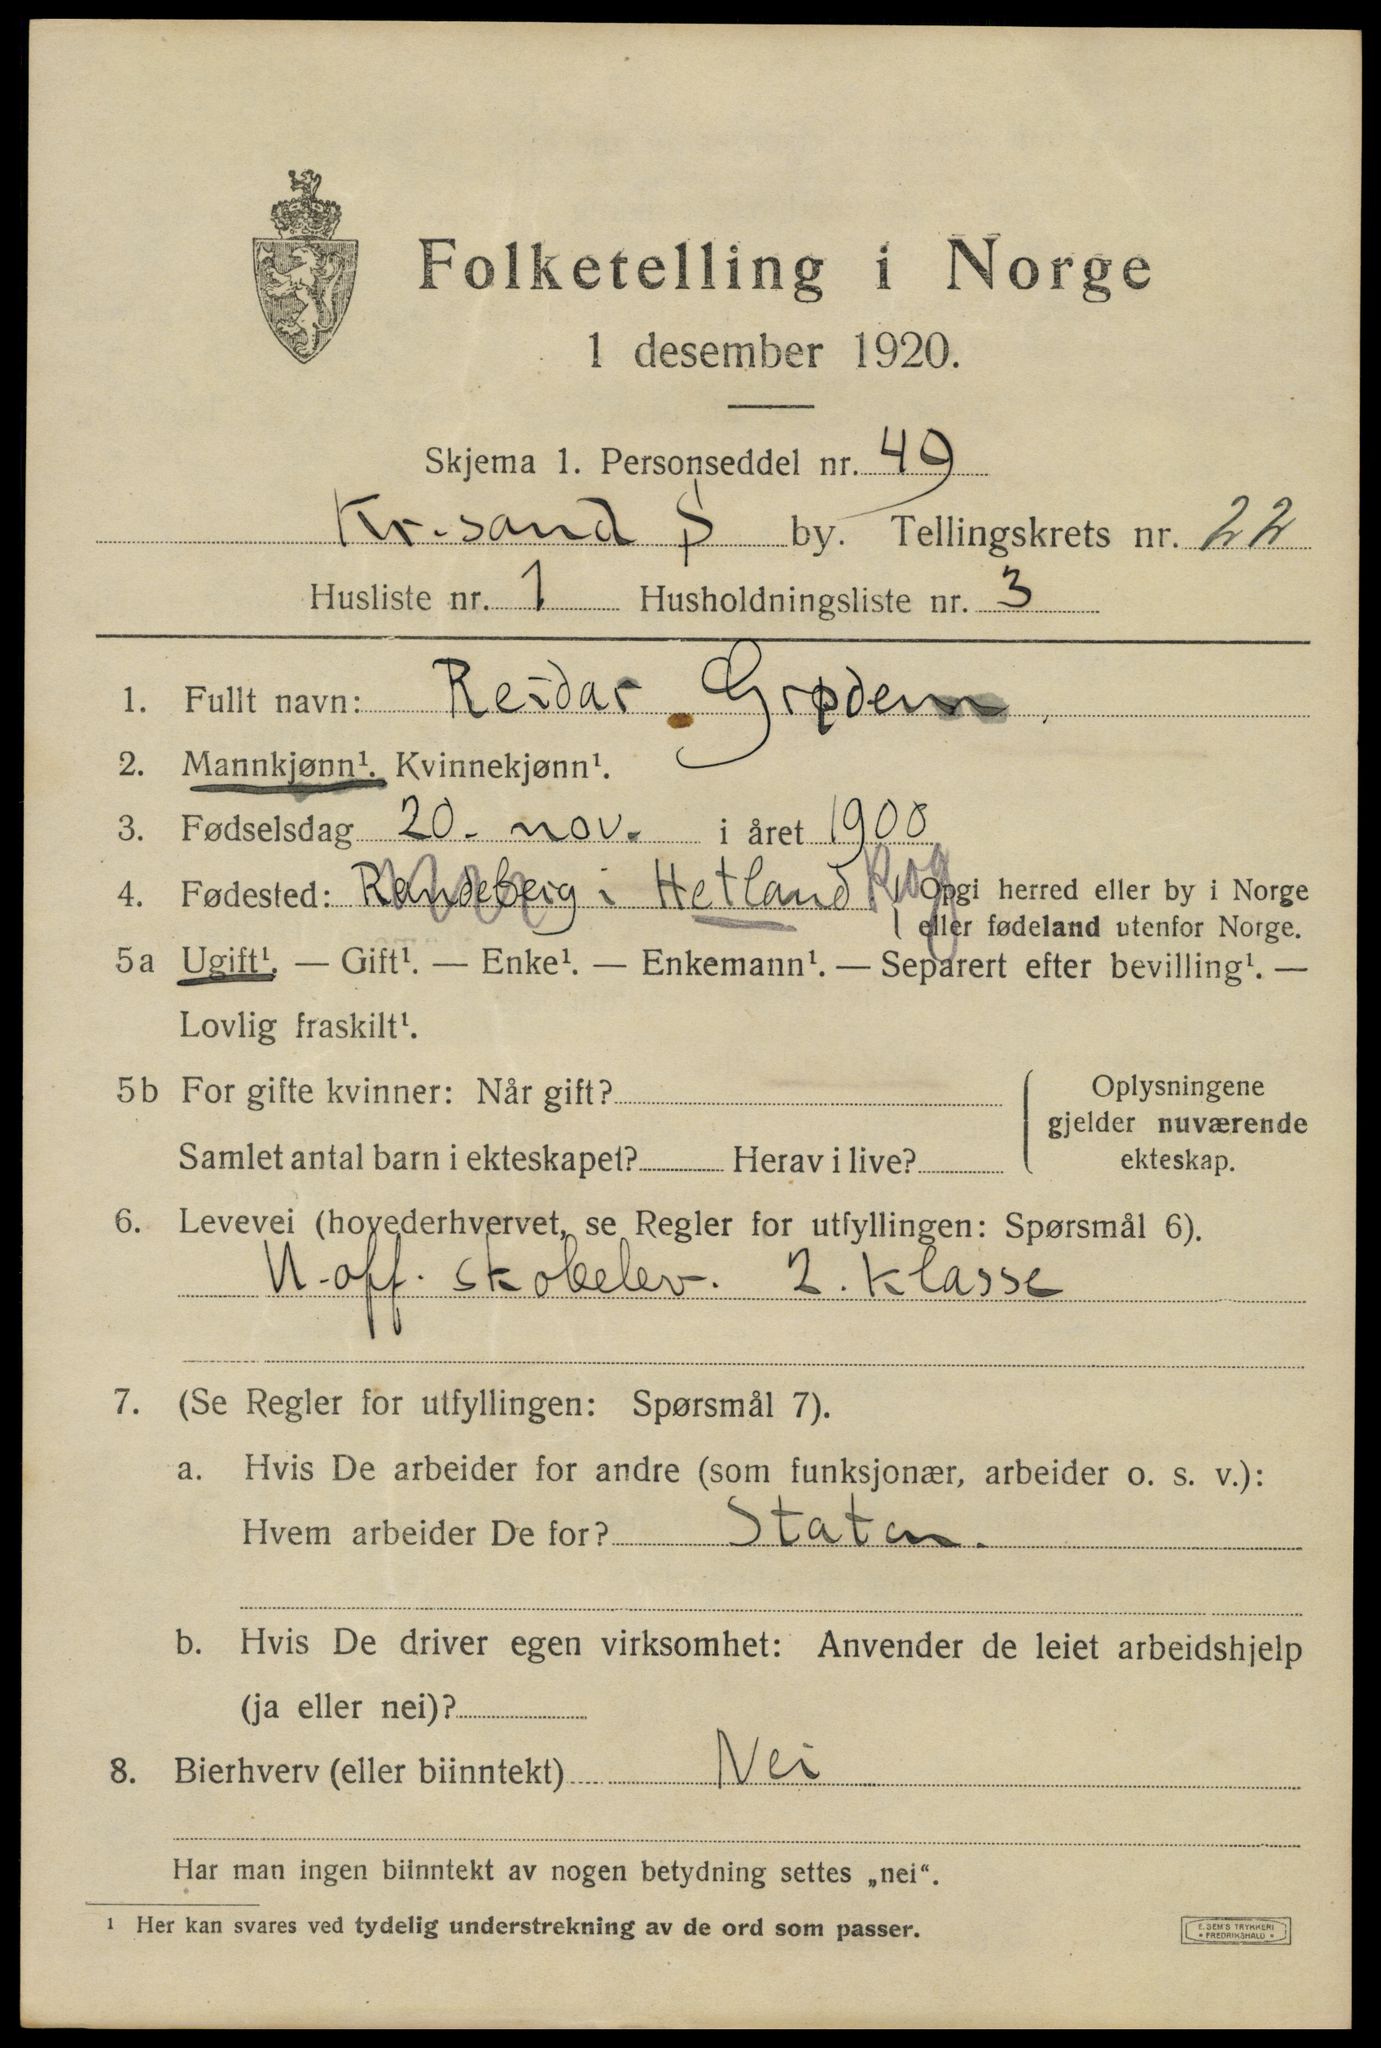 Folketelling i Norge
1 desember 1920.
Skjema 1. Personseddel nr. 49
Kr.sand S by. Tellingskrets nr. 22
Husliste nr. 1 Husholdningsliste nr. 3
1. Fullt navn: Reidar Grødem
2. Mannkjønn¹. Kvinnekjønn¹.
3. Fødselsdag 20. nov. i året 1900
4. Fødested: Randeberg i Hetland Rog Opgi herred eller by i Norge
eller fødeland utenfor Norge.
5a Ugift¹. — Gift¹. — Enke¹. — Enkemann¹. — Separert efter bevilling¹. —
Lovlig fraskilt¹.
5b For gifte kvinner: Når gift?
Samlet antal barn i ekteskapet? Herav i live?
Oplysningene
gjelder nuværende
ekteskap.
6. Levevei (hovederhvervet, se Regler for utfyllingen: Spørsmål 6).
U.off. skoleelev. 2. klasse
7. (Se Regler for utfyllingen: Spørsmål 7).
a. Hvis De arbeider for andre (som funksjonær, arbeider o. s. v.):
Hvem arbeider De for? Staten.
b. Hvis De driver egen virksomhet: Anvender de leiet arbeidshjelp
(ja eller nei)?
8. Bierhverv (eller biinntekt) Nei
Har man ingen biinntekt av nogen betydning settes „nei“.
¹ Her kan svares ved tydelig understrekning av de ord som passer.
E. SEM'S TRYKKERI
• FREDRIKSHALD •